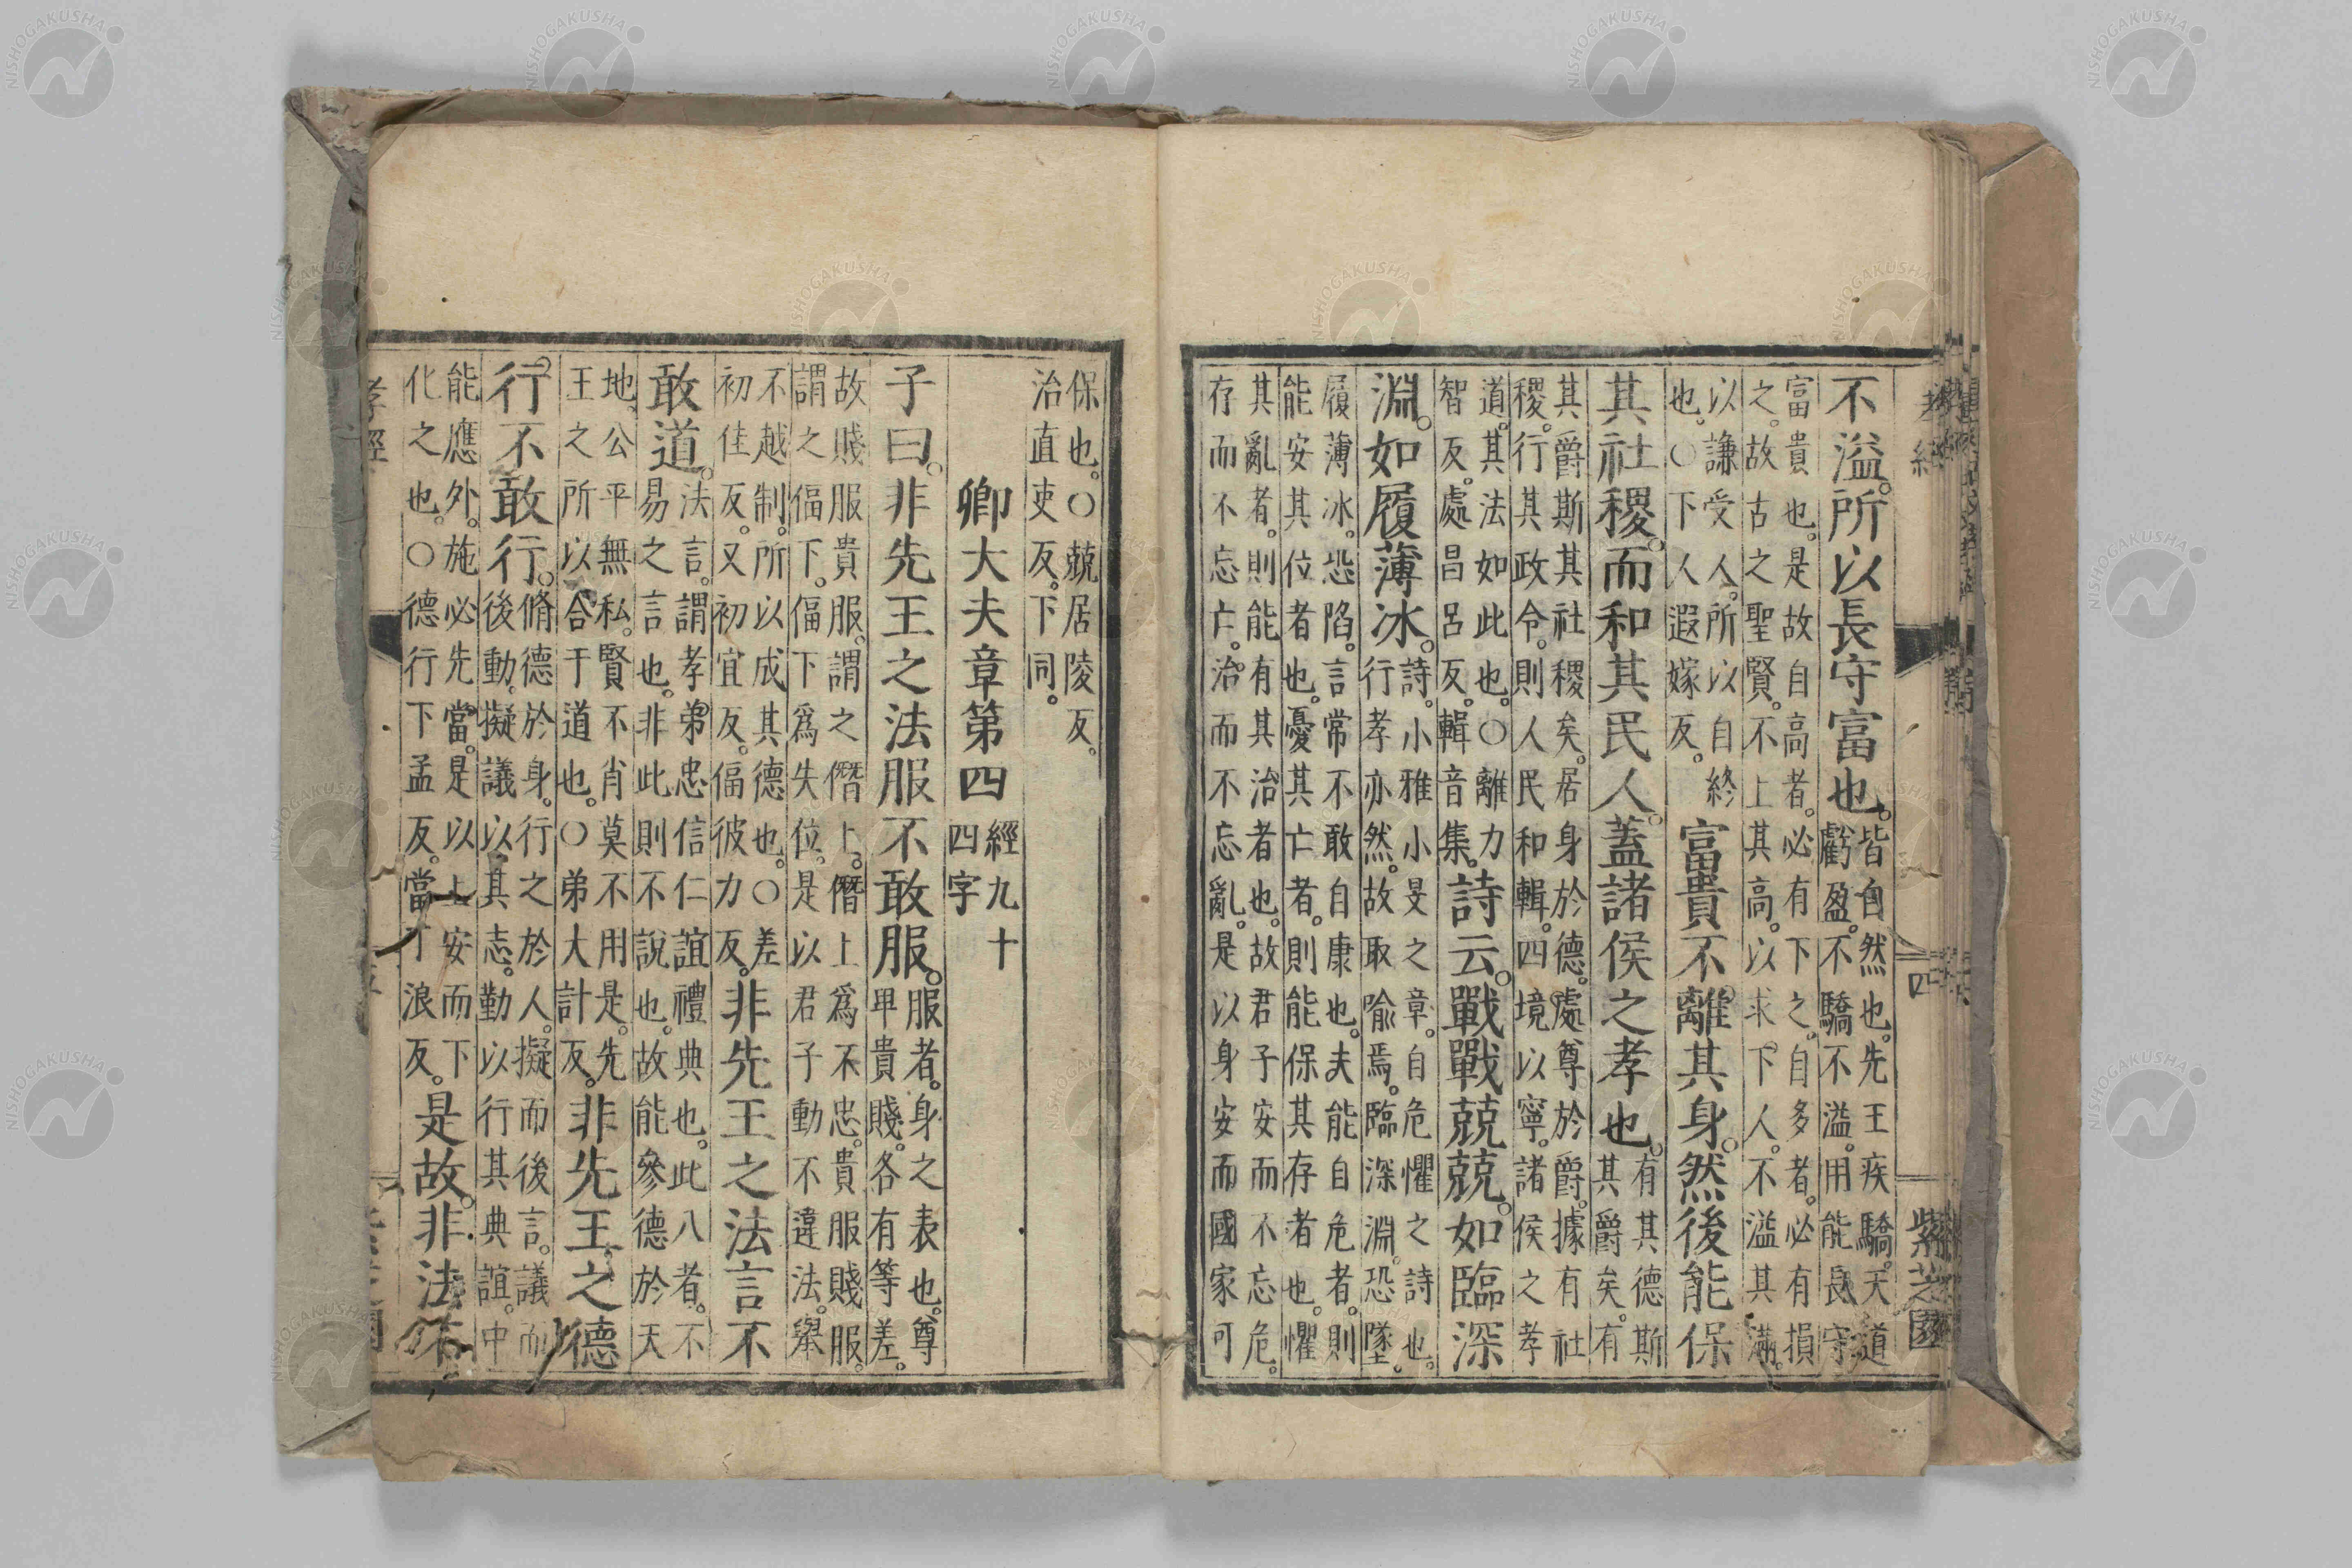 孝經 四 紫芝園
不溢。所以長守富也。皆自然也。先王疾驕。天道
虧盈。不驕不溢。用能長守
富貴也。是故自高者。必有下之。自多者。必有損
之。故古之聖賢。不上其高。以求下人。不溢其滿。
以謙受人。所以自終
也。○下人遐嫁反。富貴不離其身。然後能保
其社稷。而和其民人。蓋諸侯之孝也。有其德斯
其爵矣。有
其爵斯其社稷矣。居身於德。處尊於爵。據有社
稷。行其政令。則人民和輯。四境以寧。諸侯之孝
道。其法如此也。○離力
智反。處昌呂反。輯音集。詩云。戰戰兢兢。如臨深
淵。如履薄冰。詩。小雅小旻之章。自危懼之詩也。
行孝亦然。故取喩焉。臨深淵。恐墜。
履薄冰。恐陷。言常不敢自康也。夫能自危者。則
能安其位者也。憂其亡者。則能保其存者也。懼
其亂者。則能有其治者也。故君子安而不忘危。
存而不忘亡。治而不忘亂。是以身安而國家可
保也。○兢居陵反。
治直吏反。下同。
卿大夫章第四 經九十
四字
子曰。非先王之法服不敢服。服者。身之表也。尊
卑貴賤。各有等差。
故賤服貴服。謂之僭上。僭上爲不忠。貴服賤服。
謂之偪下。偪下爲失位。是以君子動不違法。舉
不越制。所以成其德也。○差
初佳反。又初宜反。偪彼力反。非先王之法言不
敢道。法言。謂孝弟忠信仁誼禮典也。此八者。不
易之言也。非此則不說也。故能參德於天
地。公平無私。賢不肖莫不用是。先
王之所以合于道也。○弟大計反。非先王之德
行不敢行。脩德於身。行之於人。擬而後言。議而
後動。擬議以其志。勤以行其典誼。中
能應外。施必先當。是以上安而下
化之也。○德行下孟反。當丁浪反。是故。非法不
孝經